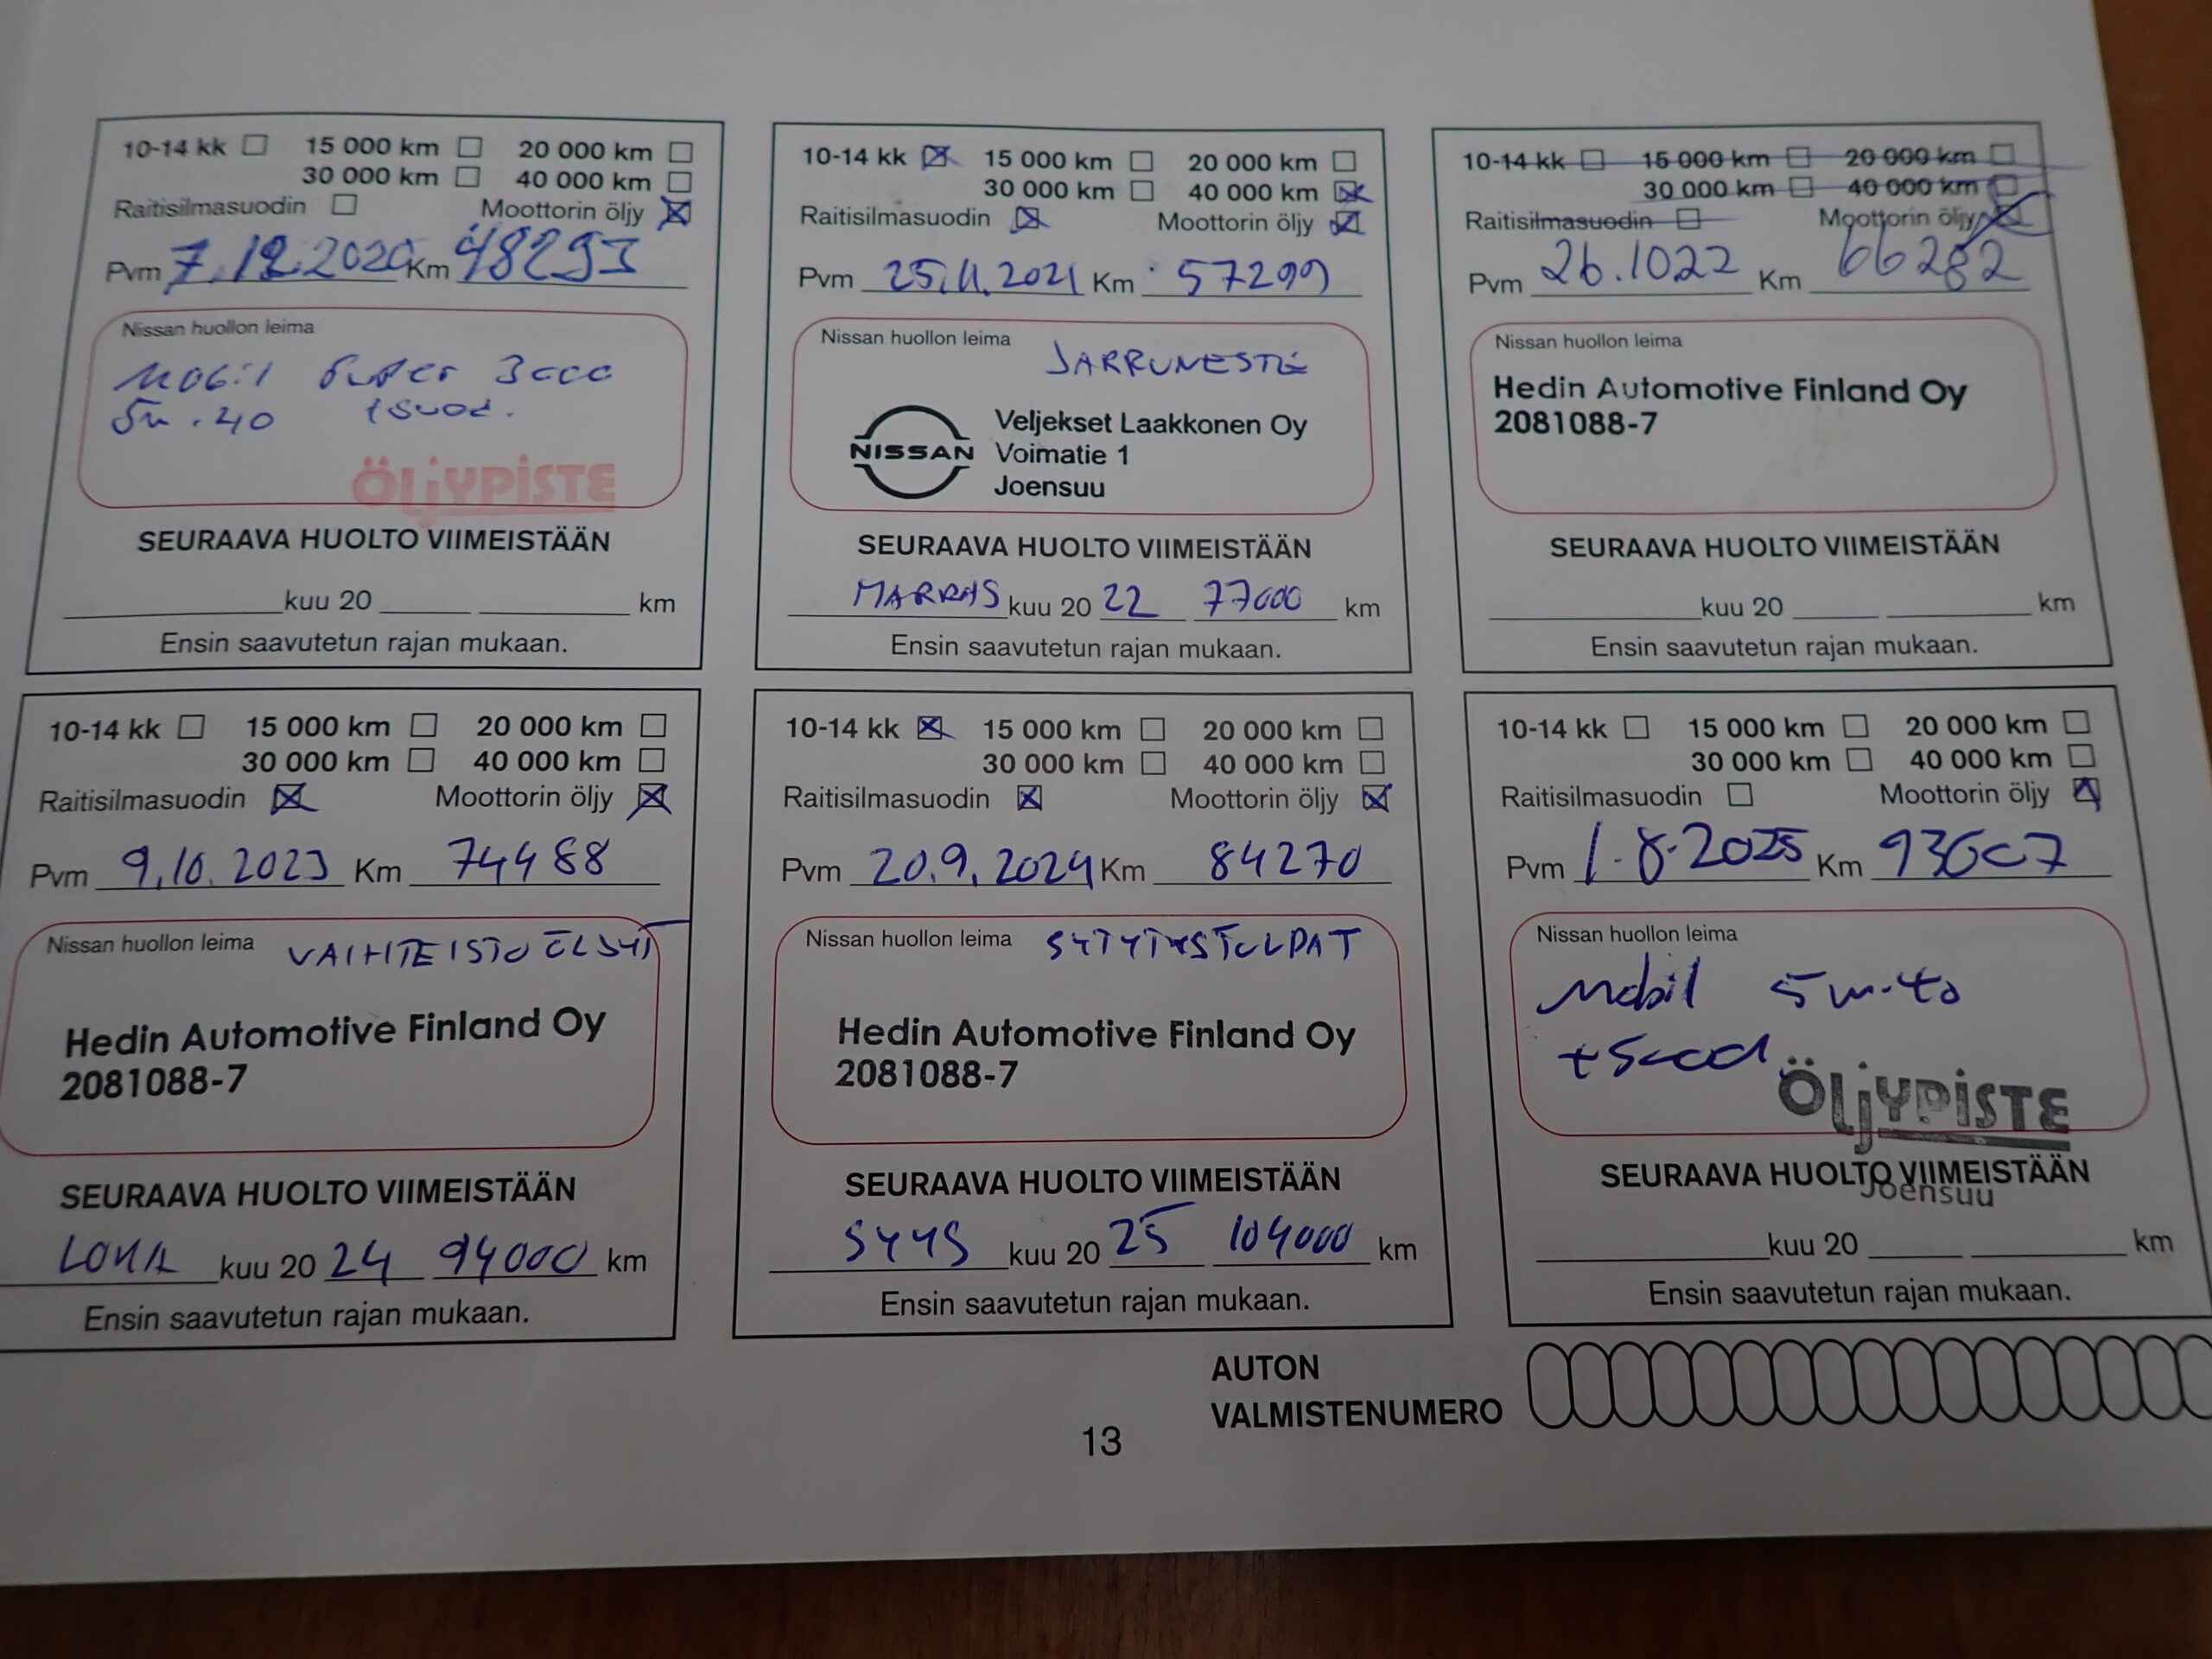 10-14 kk ☐ 15 000 km ☐ 20 000 km ☐
30 000 km ☐ 40 000 km ☐
Raitisilmasuodin ☐ Moottorin öljy ☒
Pvm 7.12.2020 Km 48293
Nissan huollon leima
Mobil Super 3000
5w.40 +suod.
ÖLJYPISTE
SEURAAVA HUOLTO VIIMEISTÄÄN
kuu 20 km
Ensin saavutetun rajan mukaan.
10-14 kk ☒ 15 000 km ☐ 20 000 km ☐
30 000 km ☐ 40 000 km ☒
Raitisilmasuodin ☒ Moottorin öljy ☒
Pvm 25.11.2021 Km 57299
Nissan huollon leima
JARRUNESTE
NISSAN
Veljekset Laakkonen Oy
Voimatie 1
Joensuu
SEURAAVA HUOLTO VIIMEISTÄÄN
MARRAS kuu 20 22 77000 km
Ensin saavutetun rajan mukaan.
10-14 kk ☐ 15 000 km ☐ 20 000 km ☐
30 000 km ☐ 40 000 km ☐
Raitisilmasuodin ☐ Moottorin öljy ☒
Pvm 26.1022 Km 66282
Nissan huollon leima
Hedin Automotive Finland Oy
2081088-7
SEURAAVA HUOLTO VIIMEISTÄÄN
kuu 20 km
Ensin saavutetun rajan mukaan.
10-14 kk ☐ 15 000 km ☐ 20 000 km ☐
30 000 km ☐ 40 000 km ☐
Raitisilmasuodin ☒ Moottorin öljy ☒
Pvm 9.10.2023 Km 74488
Nissan huollon leima
VAIHTEISTO ÖLJYT
Hedin Automotive Finland Oy
2081088-7
SEURAAVA HUOLTO VIIMEISTÄÄN
LOKA kuu 20 24 94000 km
Ensin saavutetun rajan mukaan.
10-14 kk ☒ 15 000 km ☐ 20 000 km ☐
30 000 km ☐ 40 000 km ☐
Raitisilmasuodin ☒ Moottorin öljy ☒
Pvm 20.9.2024 Km 84270
Nissan huollon leima
SYTYTYSTULPAT
Hedin Automotive Finland Oy
2081088-7
SEURAAVA HUOLTO VIIMEISTÄÄN
SYYS kuu 20 25 104000 km
Ensin saavutetun rajan mukaan.
10-14 kk ☐ 15 000 km ☐ 20 000 km ☐
30 000 km ☐ 40 000 km ☐
Raitisilmasuodin ☐ Moottorin öljy ☒
Pvm 1.8.2025 Km
Nissan huollon leima
Mobil 5w-40
+Suod.
ÖLJYPISTE
Joensuu
SEURAAVA HUOLTO VIIMEISTÄÄN
kuu 20 km
Ensin saavutetun rajan mukaan.
AUTON
VALMISTENUMERO
13